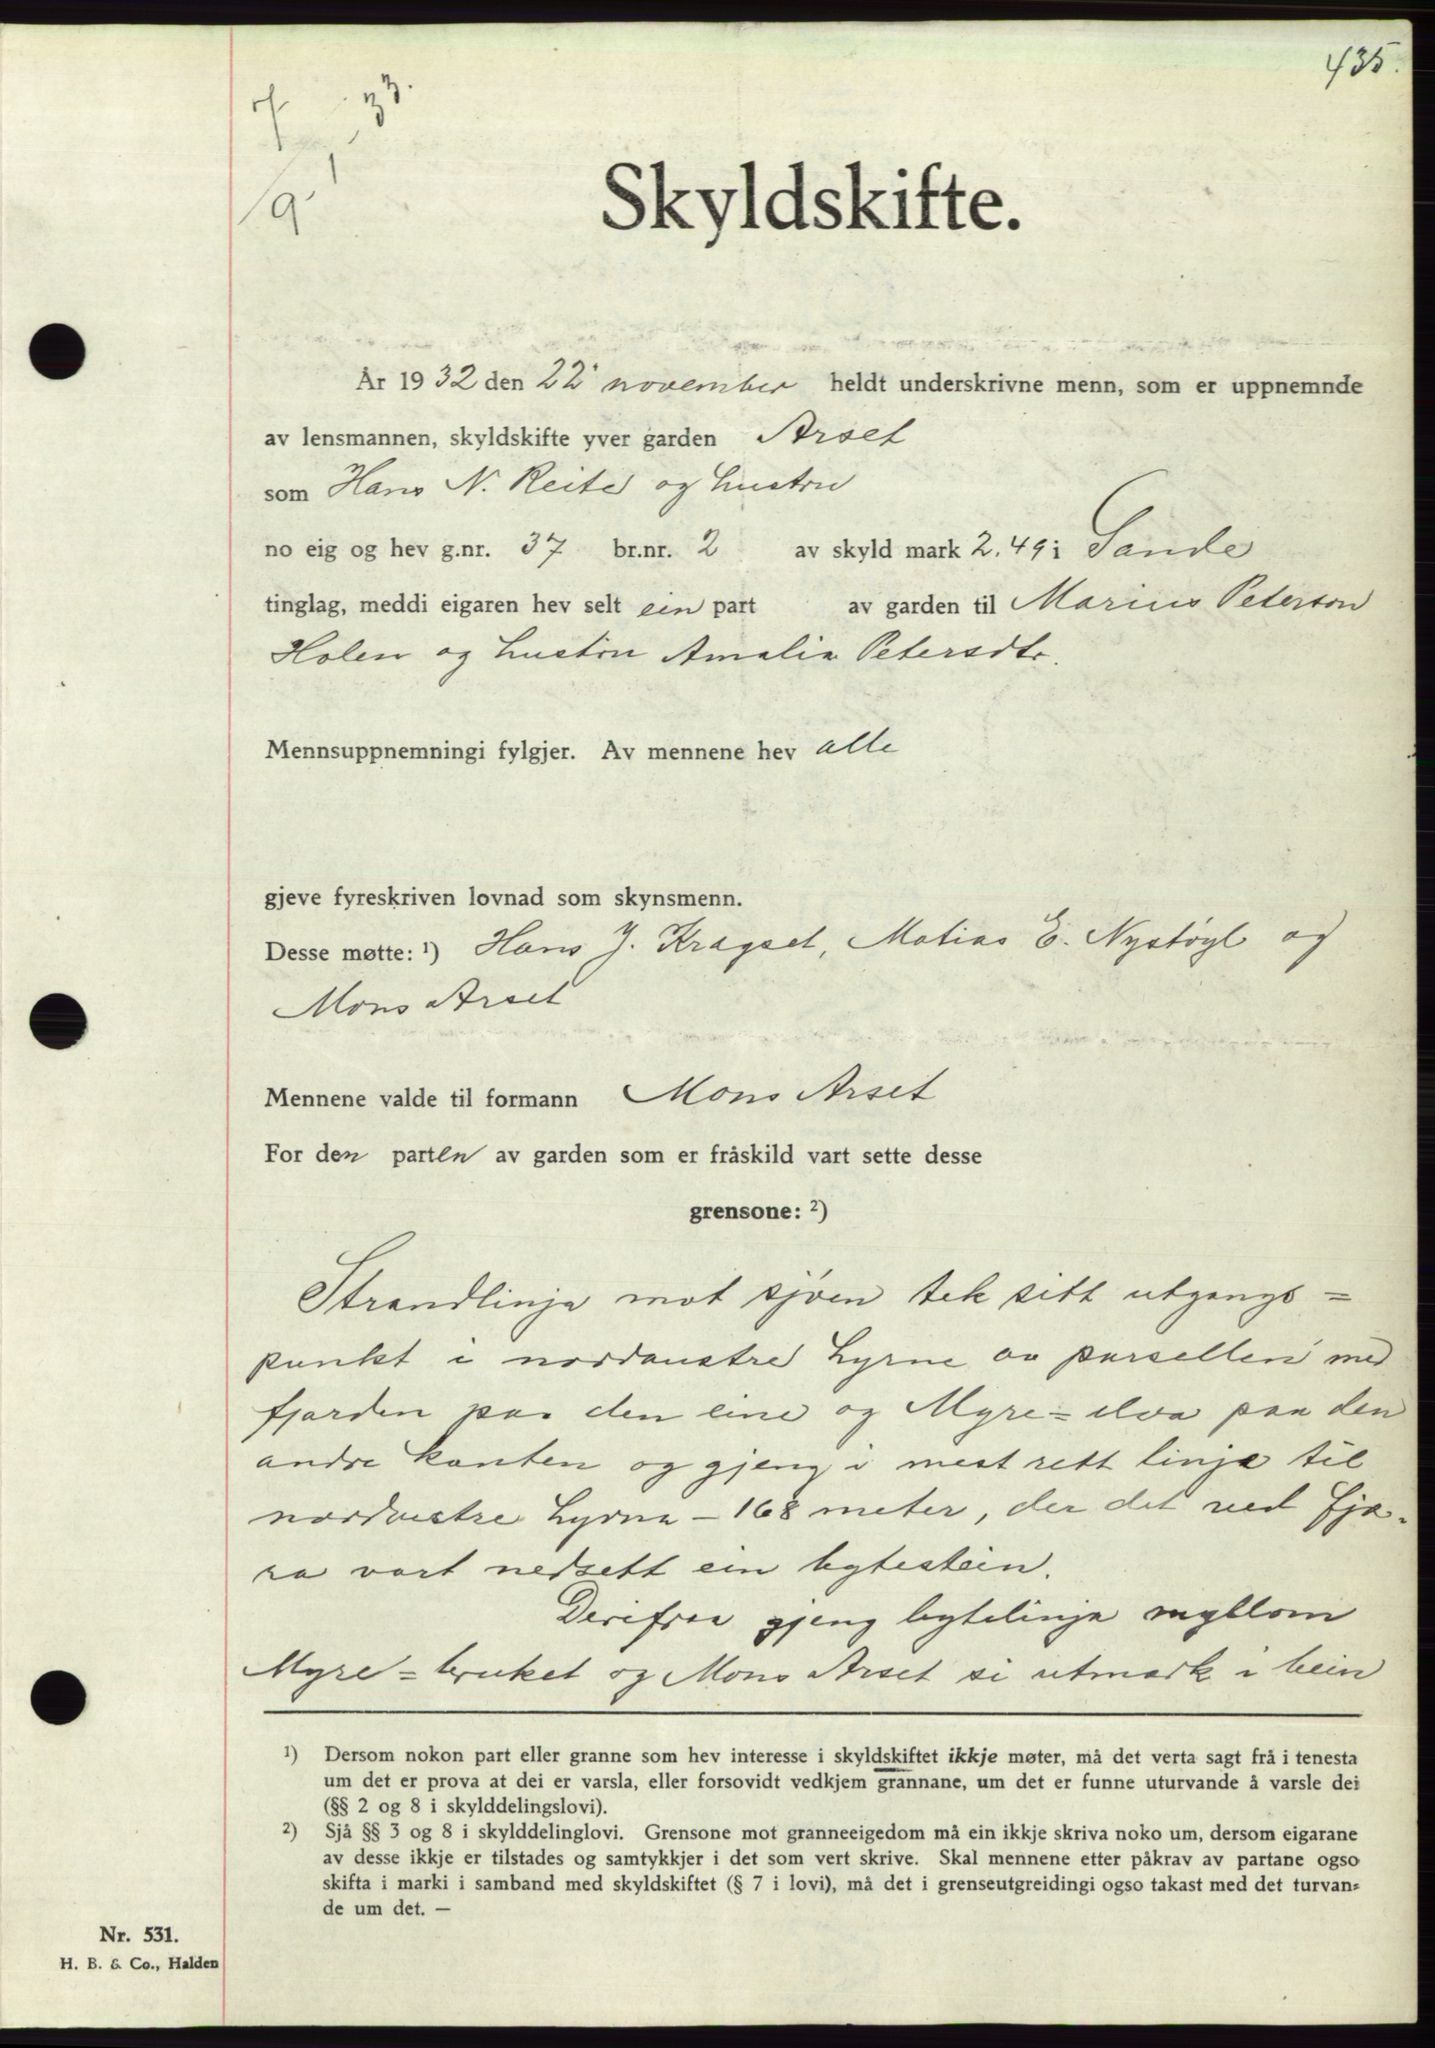 435.
7
19/1 33.
Skyldskifte.
År 1932 den 22' november heldt underskrivne menn, som er uppnemnde
av lensmannen, skyldskifte yver garden Arset
som Hans N. Reite og hustru
no eig og hev g.nr. 37 br.nr. 2 av skyld mark 2.49 i Sande
tinglag, meddi eigaren hev selt ein part av garden til Marius Peterson
Holen og hustru Amalia Petersdtr.
Mennsuppnemningi fylgjer. Av mennene hev alle
gjeve fyreskriven lovnad som skynsmenn.
Desse møtte: ¹) Hans J. Kragset, Matias E. Nystøyl og
Mons Arset
Mennene valde til formann Mons Arset
For den parten av garden som er fråskild vart sette desse
grensone: ²)
Strandlinja mot sjöen tek sitt utgangs=
punkt i nordaustre hyrne av parsellen med
fjorden paa den eine og Myre=elva paa den
andre kanten og gjeng i mest rett linje til
nordvestre hyrna – 168 meter, der det ved fjø-
ra vart nedsett ein bytestein.
Derifraa gjeng bytelinja myllom
Myre=bruket og Mons Arset si utmark i bein
¹) Dersom nokon part eller granne som hev interesse i skyldskiftet ikkje møter, må det verta sagt frå i tenesta
um det er prova at dei er varsla, eller forsovidt vedkjem grannane, um det er funne uturvande å varsle dei
(§§ 2 og 8 i skylddelingslovi).
²) Sjå §§ 3 og 8 i skylddelinglovi. Grensone mot granneeigedom må ein ikkje skriva noko um, dersom eigarane
av desse ikkje er tilstades og samtykkjer i det som vert skrive. Skal mennene etter påkrav av partane ogso
skifta i marki i samband med skyldskiftet (§ 7 i lovi), må det i grenseutgreidingi ogso takast med det turvan=
de um det. —
Nr. 531.
H. B. & Co., Halden